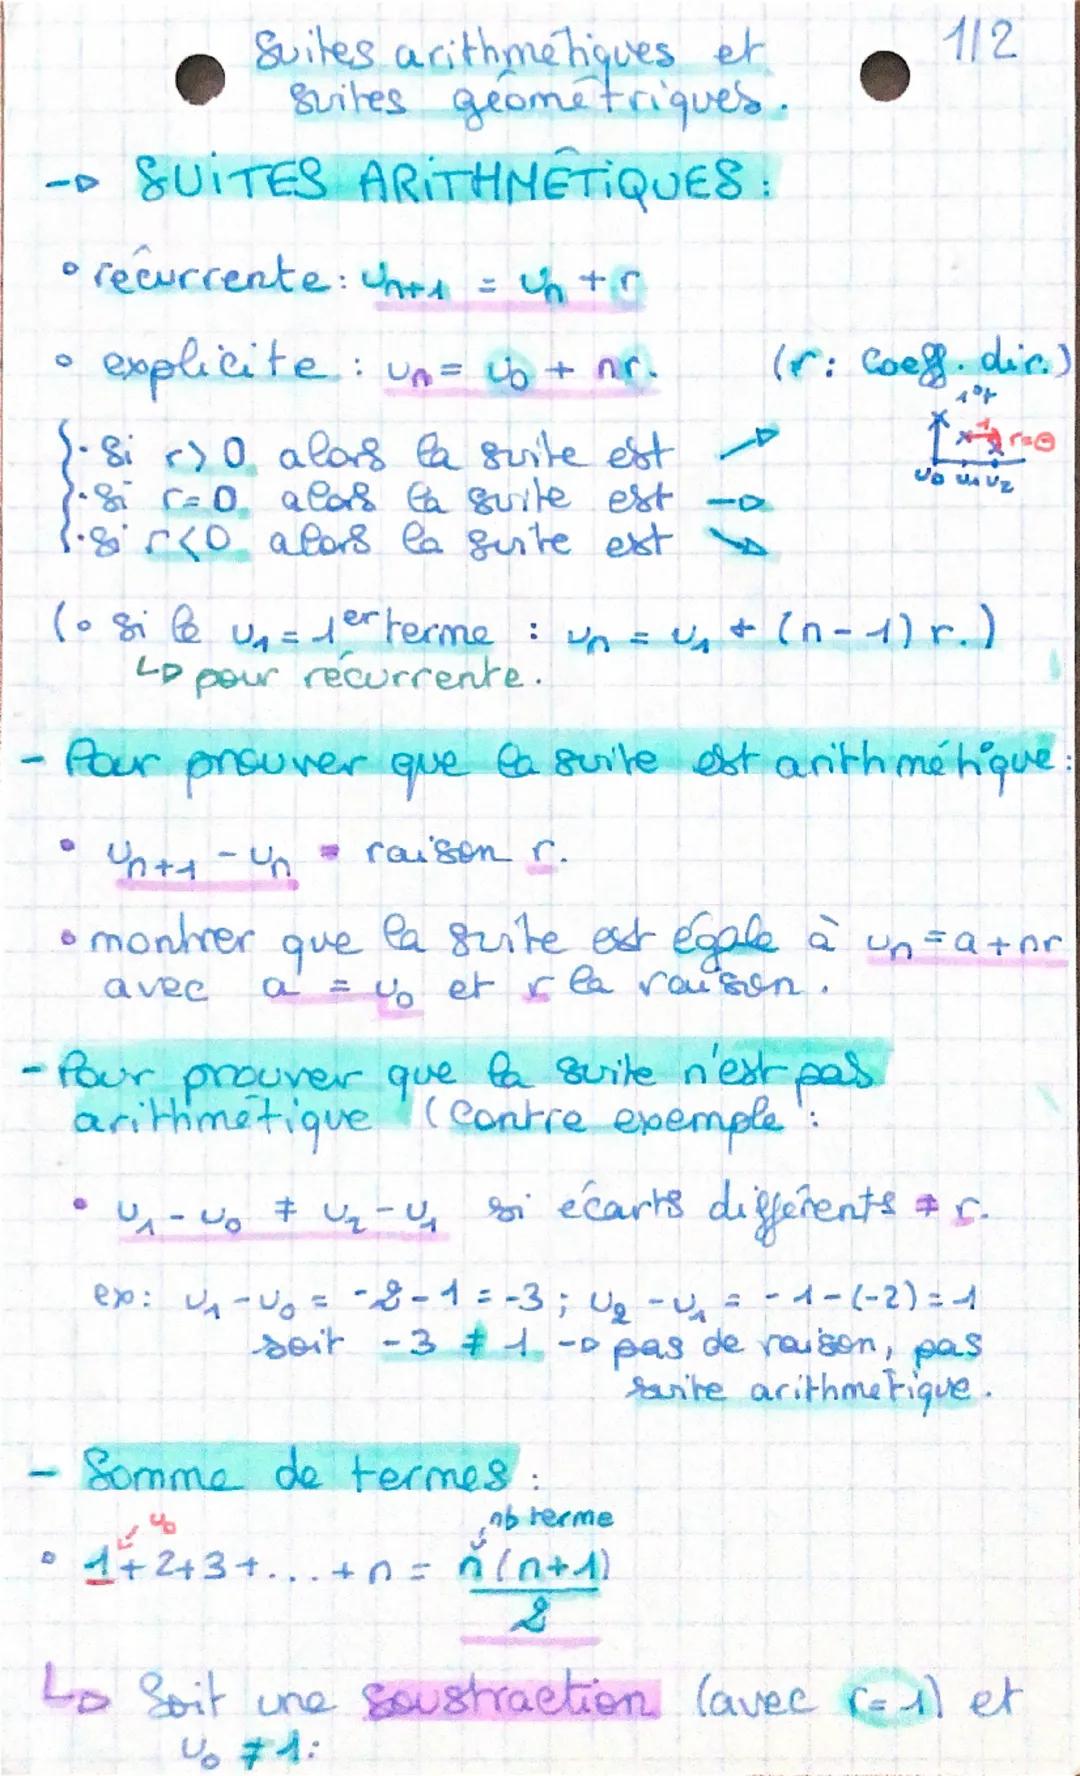 1/2
Suites arithmétiques et
suites géométriques.
→ SUITES ARITHMÉTIQUES :
• récurrente : un+1 = un + r
• explicite : un = u0 + nr. (r : coeff. dir.)
1er
r=⊖
u0 u1 u2
• Si r > 0 alors la suite est ↗
• Si r = 0 alors la suite est →
• Si r < 0 alors la suite est ↘
(• si le u1 = 1er terme : un = u1 + (n-1) r.)
↳ pour récurrente.
- Pour prouver que la suite est arithmétique :
• un+1 - un = raison r.
• montrer que la suite est égale à un = a + nr
avec a = u0 et r la raison.
- Pour prouver que la suite n'est pas
arithmétique (Contre exemple :
• u1 - u0 ≠ u2 - u1 si écarts différents ≠ r.
ex : u1 - u0 = -2 - 1 = -3 ; u2 - u1 = -1 - (-2) = 1
soit -3 ≠ 1 → pas de raison, pas
suite arithmétique.
- Somme de termes :
u0 nb terme
• 1 + 2 + 3 + ... + n = n(n+1)
2
↳ Soit une soustraction (avec r = 1) et
u0 ≠ 1 :